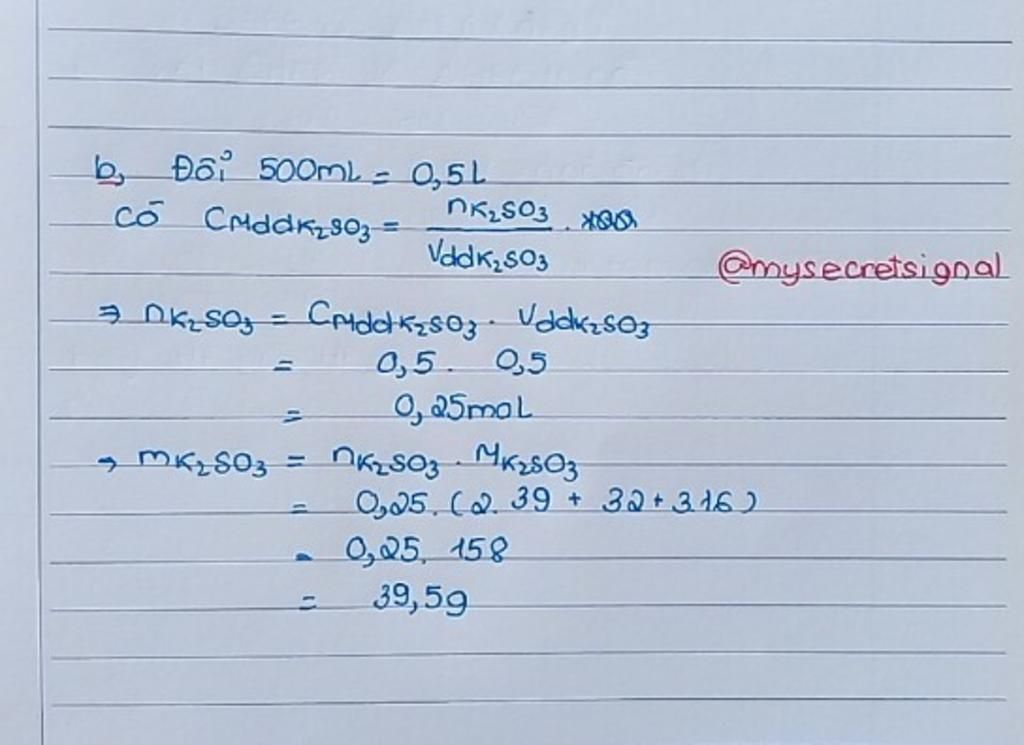 b, Đổi 500mL = 0,5L
Có CMddK₂SO₃ = nK₂SO₃ / VddK₂SO₃ .
@mysecretsignal
⇒ nK₂SO₃ = CMddK₂SO₃ . VddK₂SO₃
= 0,5 . 0,5
= 0,25moL
→ mK₂SO₃ = nK₂SO₃ . MK₂SO₃
= 0,25. (2.39 + 32 + 3.16)
= 0,25. 158
= 39,5g